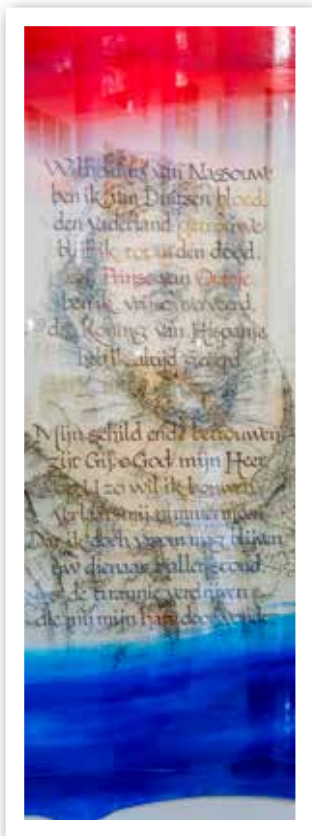 Wilhelmus van Nassouwe
ben ik van Duitsen bloed,
den vaderland getrouwe
blijf ik tot in den dood.
een Prinse van Oranje
ben ik, vrij, onverveerd,
de Koning van Hispanje
heb ik altijd geëerd
Mijn schild ende betrouwen
zijt Gij, o God mijn Heer,
op U zo wil ik bouwen
verlaat mij nimmermeer
Dat ik doch vroom mag blijven
uw dienaar t'aller stond
de tirannie verdrijven
die mij mijn hart doorwondt